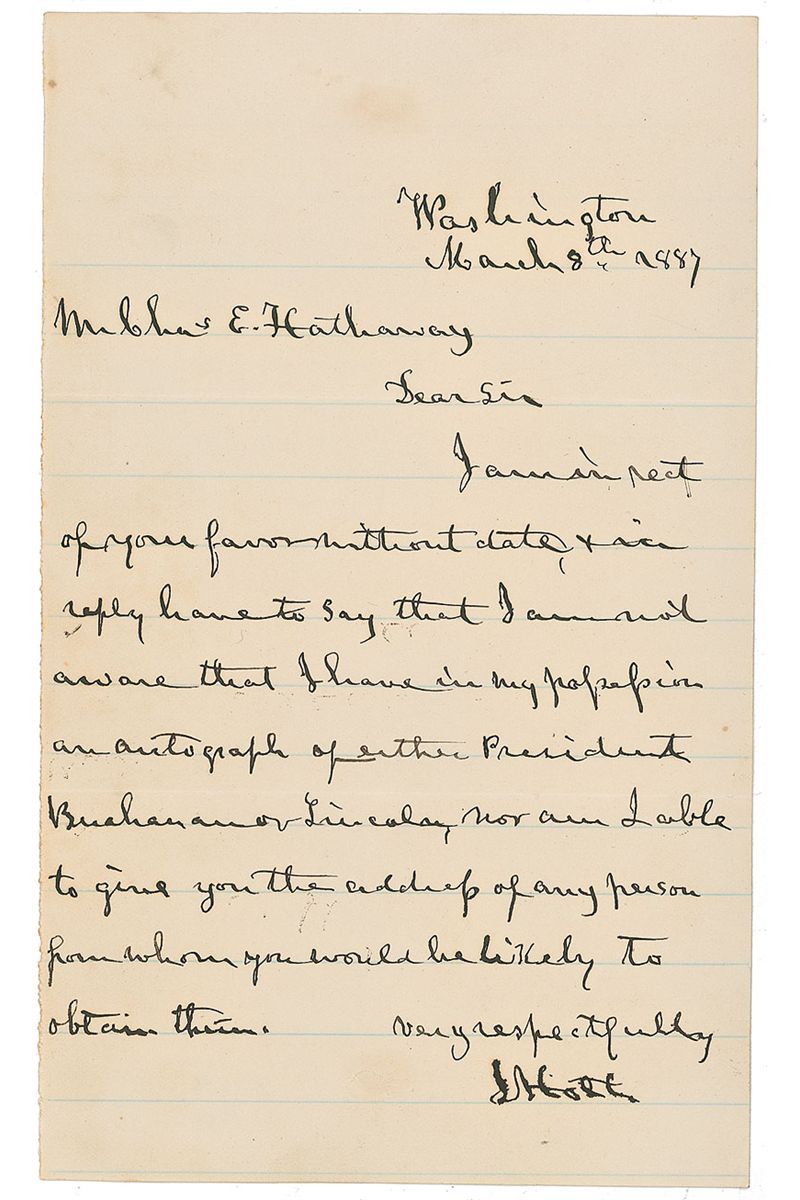 Washington
March 8th 1887
Mr Chas E. Hathaway
Dear Sir
I am in rect
of your favor without date, & in
reply have to say that I am not
aware that I have in my possession
an autograph of either President
Buchanan or Lincoln, nor am I able
to give you the address of any person
from whom you would be likely to
obtain them. very respectfully
J Holt.